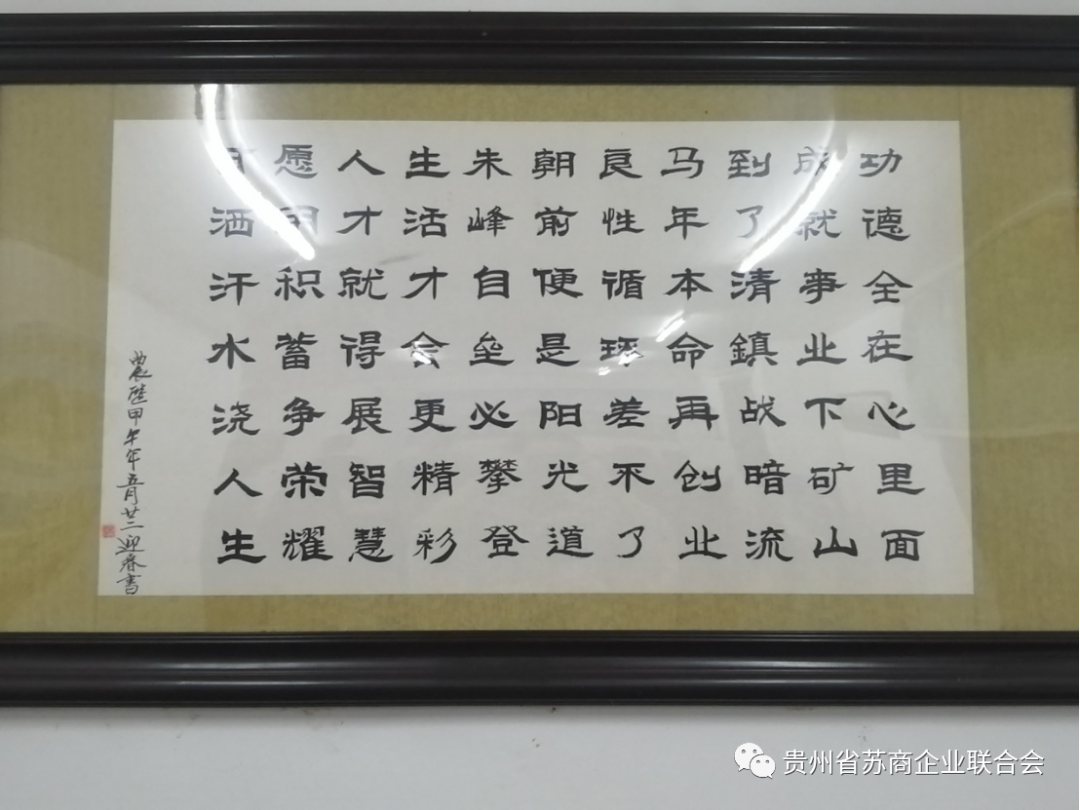 功德全在心里面
成就事业下矿山
到了清鎮战暗流
马年本命再创业
良性循环差不了
朝前便是阳光道
朱峰自垒必攀登
生活才会更精彩
人才就得展智慧
愿用积蓄争荣耀
洒汗水浇人生
農歷甲午年五月廿二迎春書
贵州省苏商企业联合会